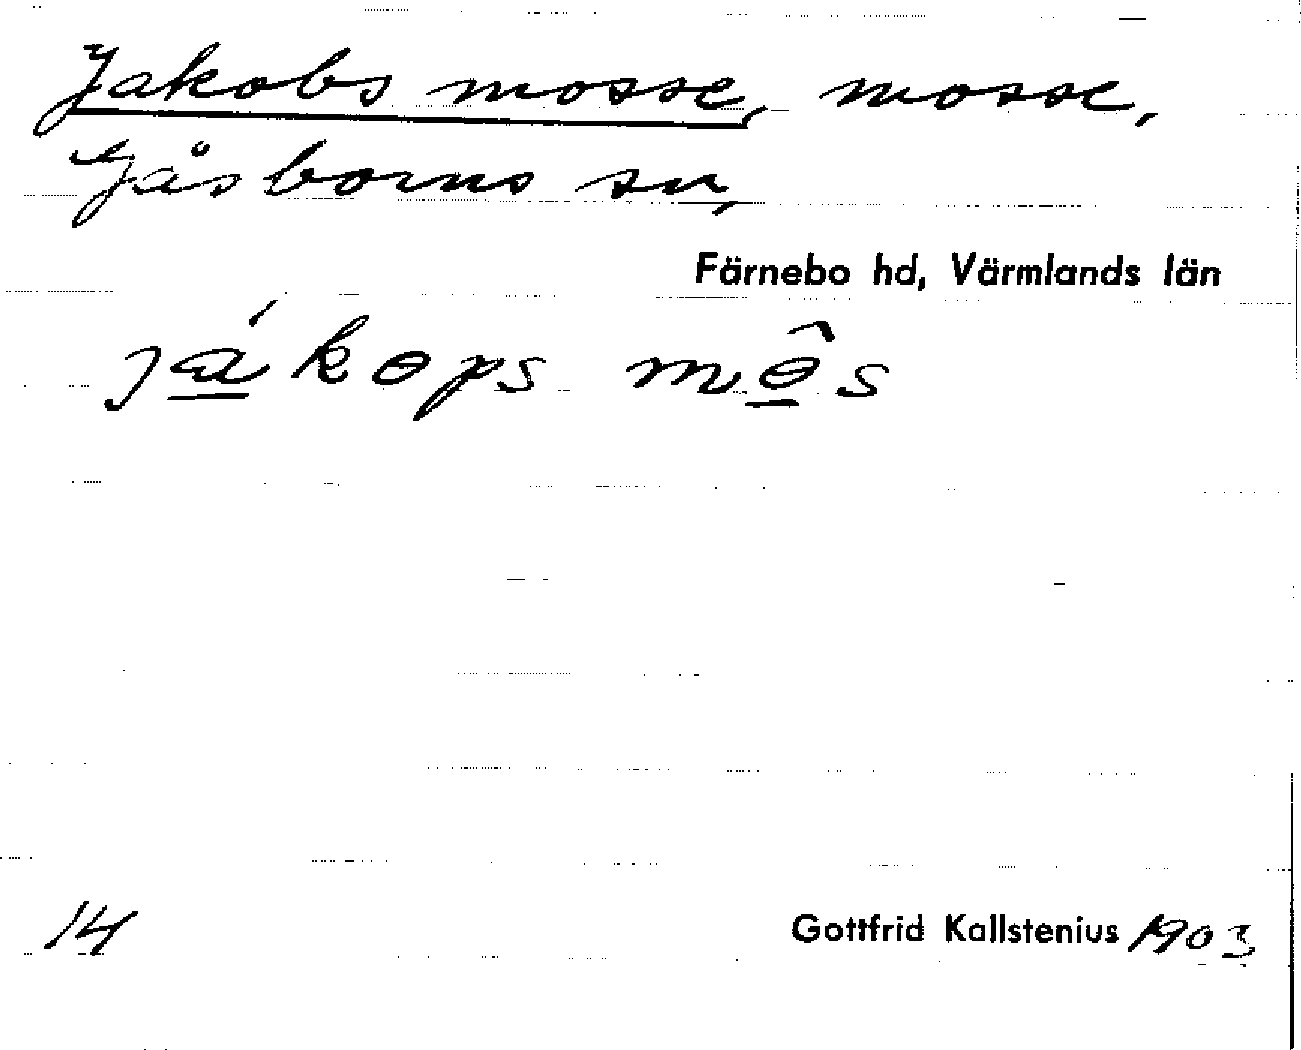 Jakobs mosse, mosse,
Gåsborns sn,
Färnebo hd, Värmlands län
jákɵps mɵ̂s
14
Gottfrid Kallstenius 1903